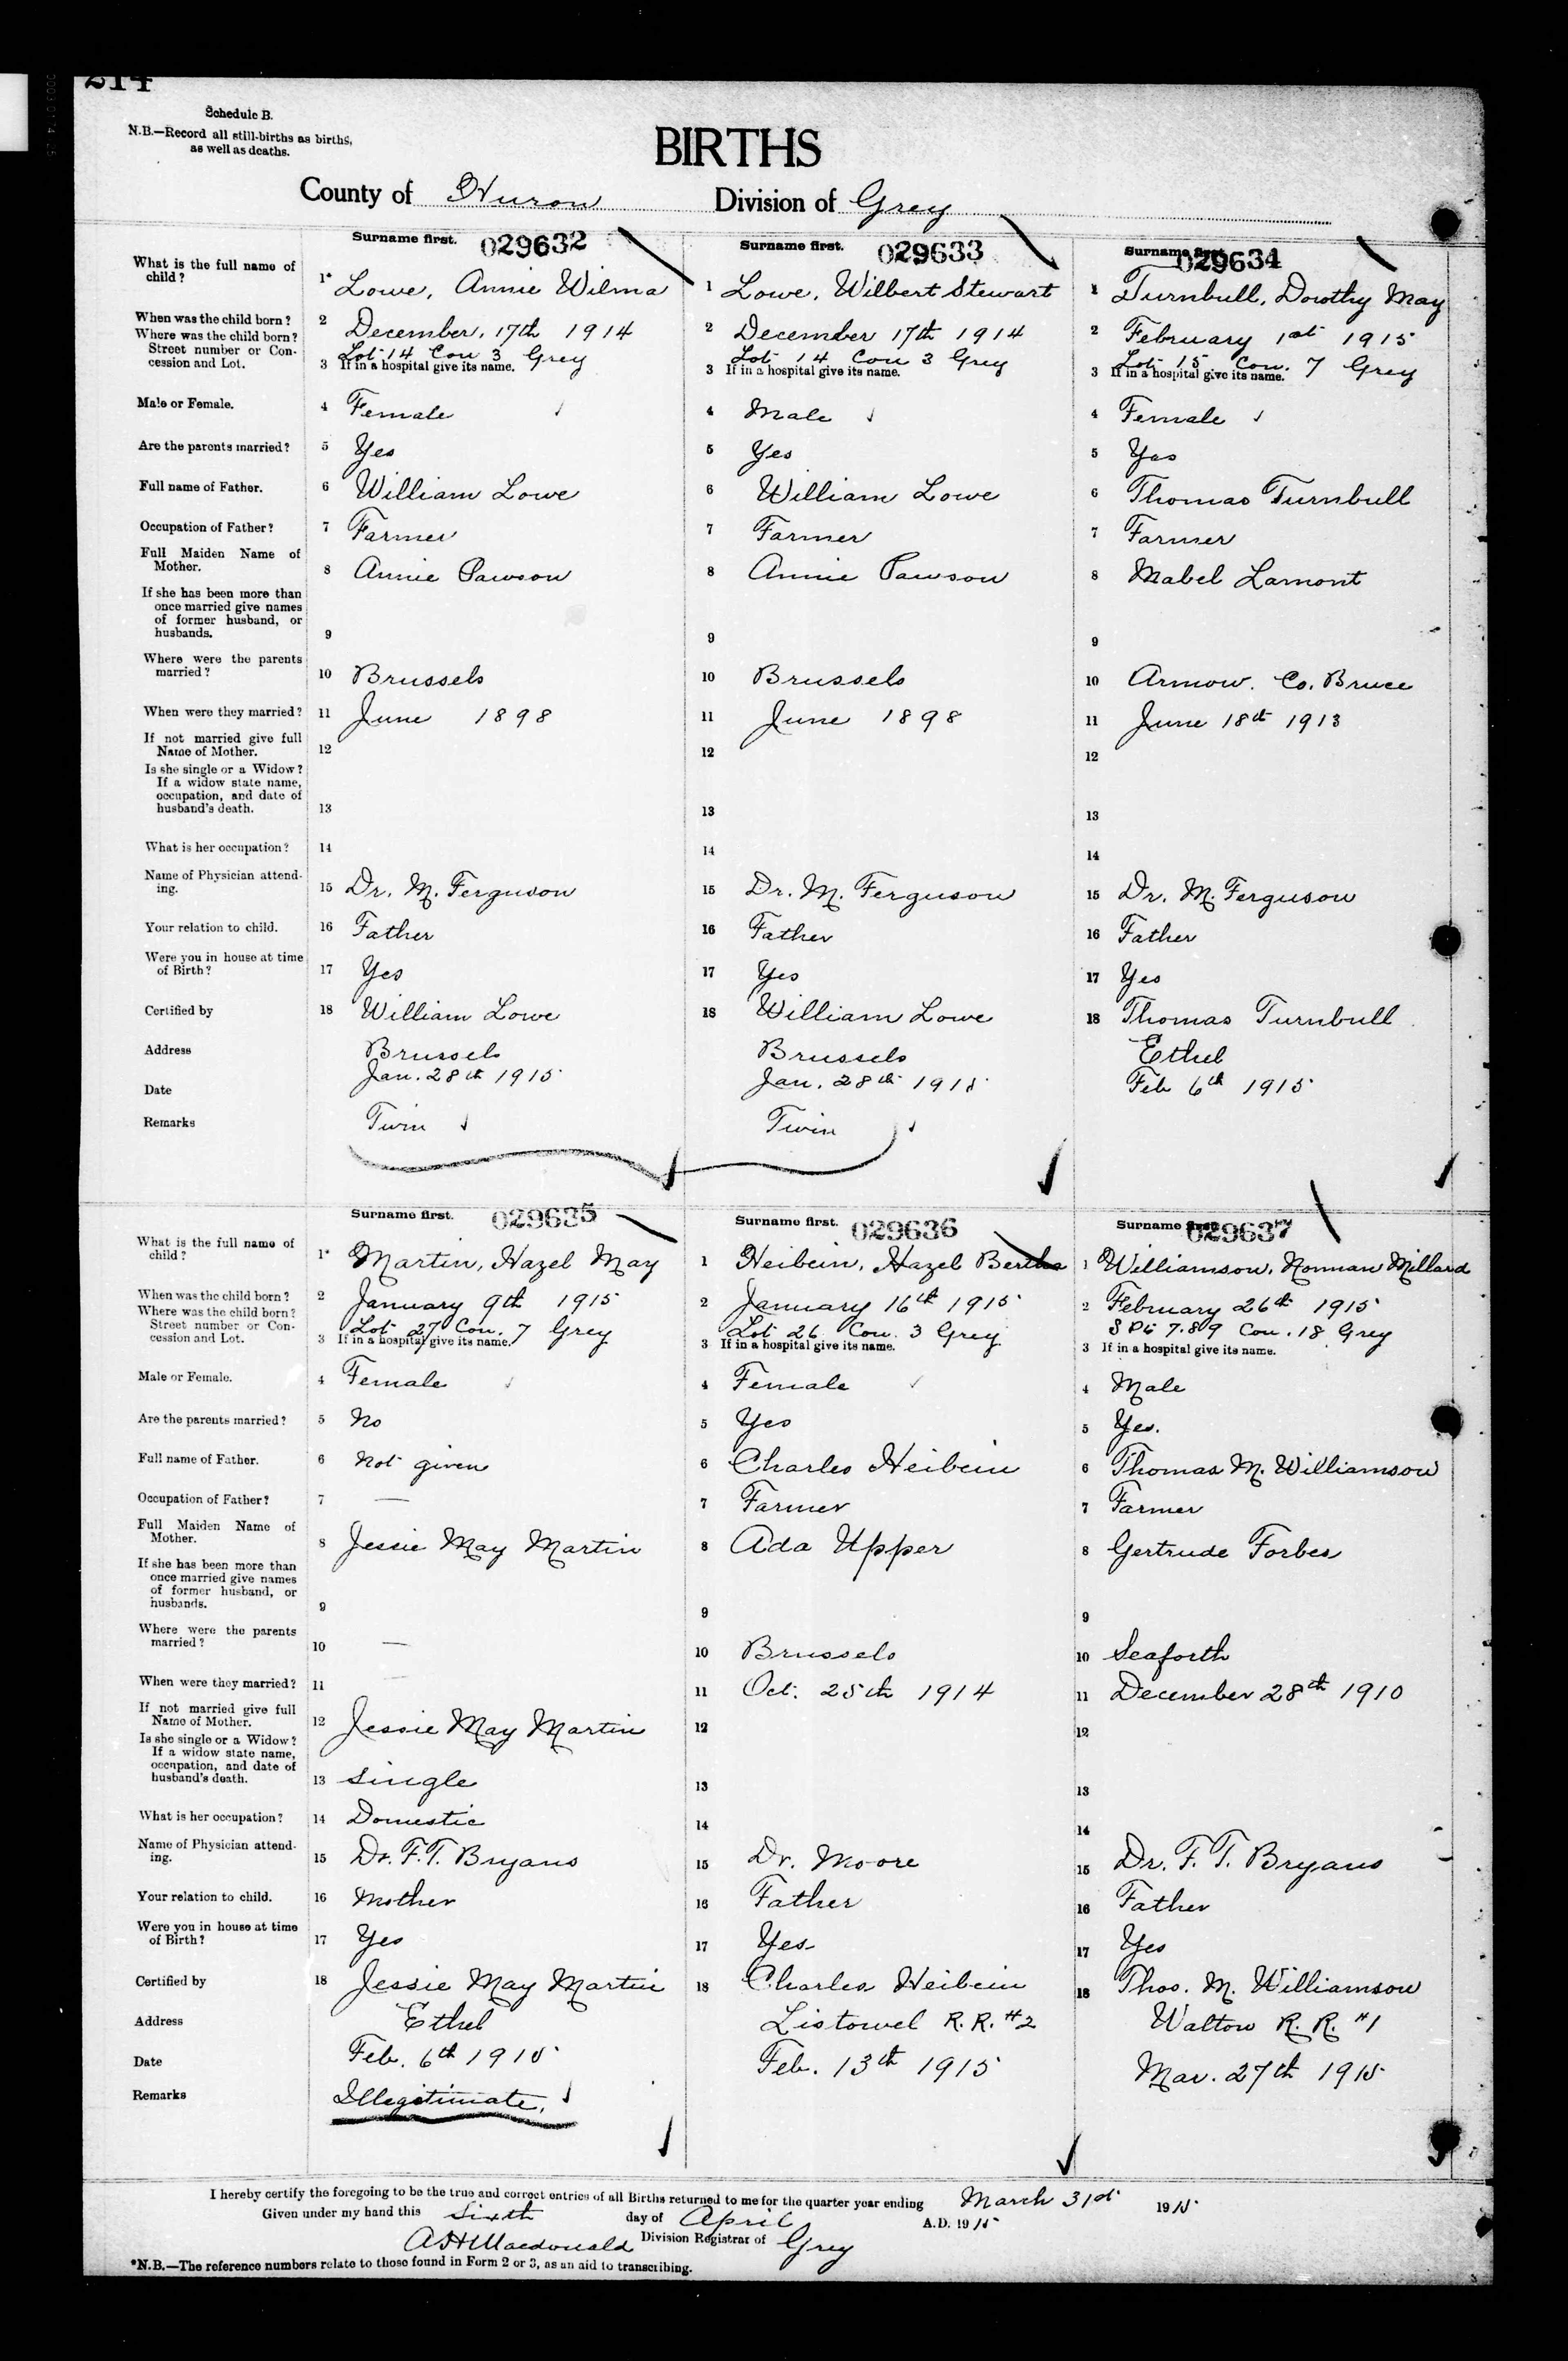 214
Schedule B.
N.B.—Record all still-births as births,
as well as deaths.
BIRTHS
County of Huron Division of Grey
Surname first. 029632
Surname first. 029633
Surname first. 029634
What is the full name of child? 1* Lowe, Annie Wilma 1 Lowe, Wilbert Stewart 1 Turnbull, Dorothy May
When was the child born? 2 December, 17th 1914 2 December 17th 1914 2 February 1st 1915
Where was the child born? Street number or Concession and Lot. Lot 14 Con 3 Grey Lot 14 Con 3 Grey Lot 15 Con. 7 Grey
3 If in a hospital give its name. 3 If in a hospital give its name. 3 If in a hospital give its name.
Male or Female. 4 Female 4 Male 4 Female
Are the parents married? 5 Yes 5 Yes 5 Yes
Full name of Father. 6 William Lowe 6 William Lowe 6 Thomas Turnbull
Occupation of Father? 7 Farmer 7 Farmer 7 Farmer
Full Maiden Name of Mother. 8 Annie Pawson 8 Annie Pawson 8 Mabel Lamont
If she has been more than once married give names of former husband, or husbands. 9 9 9
Where were the parents married? 10 Brussels 10 Brussels 10 Armow. Co. Bruce
When were they married? 11 June 1898 11 June 1898 11 June 18th 1913
If not married give full Name of Mother. 12 12 12
Is she single or a Widow? If a widow state name, occupation, and date of husband's death. 13 13 13
What is her occupation? 14 14 14
Name of Physician attending. 15 Dr. M. Ferguson 15 Dr. M. Ferguson 15 Dr. M. Ferguson
Your relation to child. 16 Father 16 Father 16 Father
Were you in house at time of Birth? 17 Yes 17 Yes 17 Yes
Certified by 18 William Lowe 18 William Lowe 18 Thomas Turnbull
Address Brussels Brussels Ethel
Date Jan. 28th 1915 Jan. 28th 1915 Feb 6th 1915
Remarks Twin Twin
Surname first. 029635
Surname first. 029636
Surname first. 029637
What is the full name of child? 1* Martin, Hazel May 1 Heibein, Hazel Bertha 1 Williamson, Norman Millard
When was the child born? 2 January 9th 1915 2 January 16th 1915 2 February 26th 1915
Where was the child born? Street number or Concession and Lot. Lot 27 Con. 7 Grey Lot 26 Con. 3 Grey 7.8 9 Con. 18 Grey
3 If in a hospital give its name. 3 If in a hospital give its name. 3 If in a hospital give its name.
Male or Female. 4 Female 4 Female 4 Male
Are the parents married? 5 No 5 Yes 5 Yes.
Full name of Father. 6 Not given 6 Charles Heibein 6 Thomas M. Williamson
Occupation of Father? 7 — 7 Farmer 7 Farmer
Full Maiden Name of Mother. 8 Jessie May Martin 8 Ada Upper 8 Gertrude Forbes
If she has been more than once married give names of former husband, or husbands. 9 9 9
Where were the parents married? 10 — 10 Brussels 10 Seaforth
When were they married? 11 — 11 Oct. 25th 1914 11 December 28th 1910
If not married give full Name of Mother. 12 Jessie May Martin 12 12
Is she single or a Widow? If a widow state name, occupation, and date of husband's death. 13 Single 13 13
What is her occupation? 14 Domestic 14 14
Name of Physician attending. 15 Dr. F. T. Bryans 15 Dr. Moore 15 Dr. F. T. Bryans
Your relation to child. 16 Mother 16 Father 16 Father
Were you in house at time of Birth? 17 Yes 17 Yes 17 Yes
Certified by 18 Jessie May Martin 18 Charles Heibein 18 Thos. M. Williamson
Address Ethel Listowel R.R. #2 Walton R.R. #1
Date Feb. 6th 1915 Feb. 13th 1915 Mar. 27th 1915
Remarks Illegitimate.
I hereby certify the foregoing to be the true and correct entries of all Births returned to me for the quarter year ending March 31st 1915
Given under my hand this Sixth day of April A.D. 1915
A H Macdonald Division Registrar of Grey
*N.B.—The reference numbers relate to those found in Form 2 or 3, as an aid to transcribing.